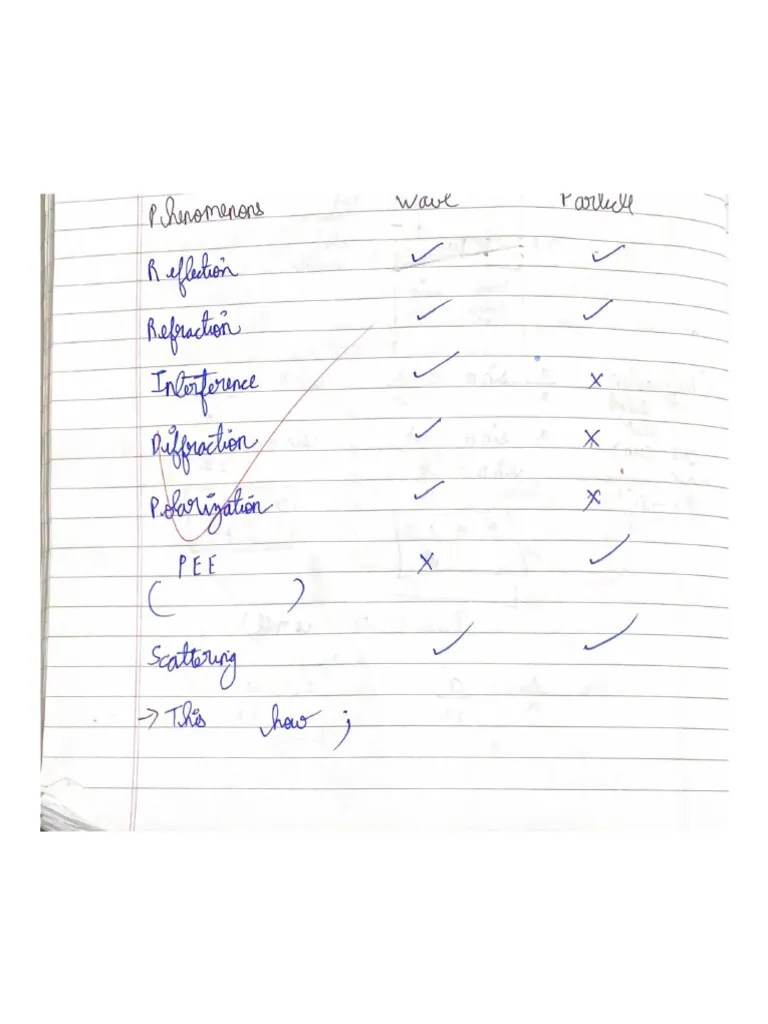 Phenomenons Wave Particle
Reflection ✓ ✓
Refraction ✓ ✓
Interference ✓ x
Diffraction ✓ x
Polarization ✓ x
PEE x ✓
( )
Scattering ✓ ✓
→ This how ;